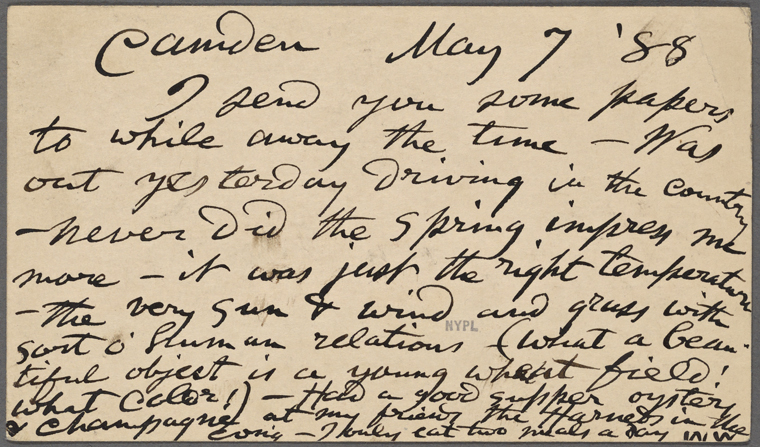 Camden May 7 '88
I send you some papers
to while away the time - Was
out yesterday driving in the country
- never did the Spring impress me
more - it was just the right temperature
- the very sun & wind and grass with
NYPL
sort o' human relations (what a beau-
tiful object is a young wheat field!
what color!) - Had a good supper oysters
& Champagne at my friends the Harneds in the
evening - I only eat two meals a day WW